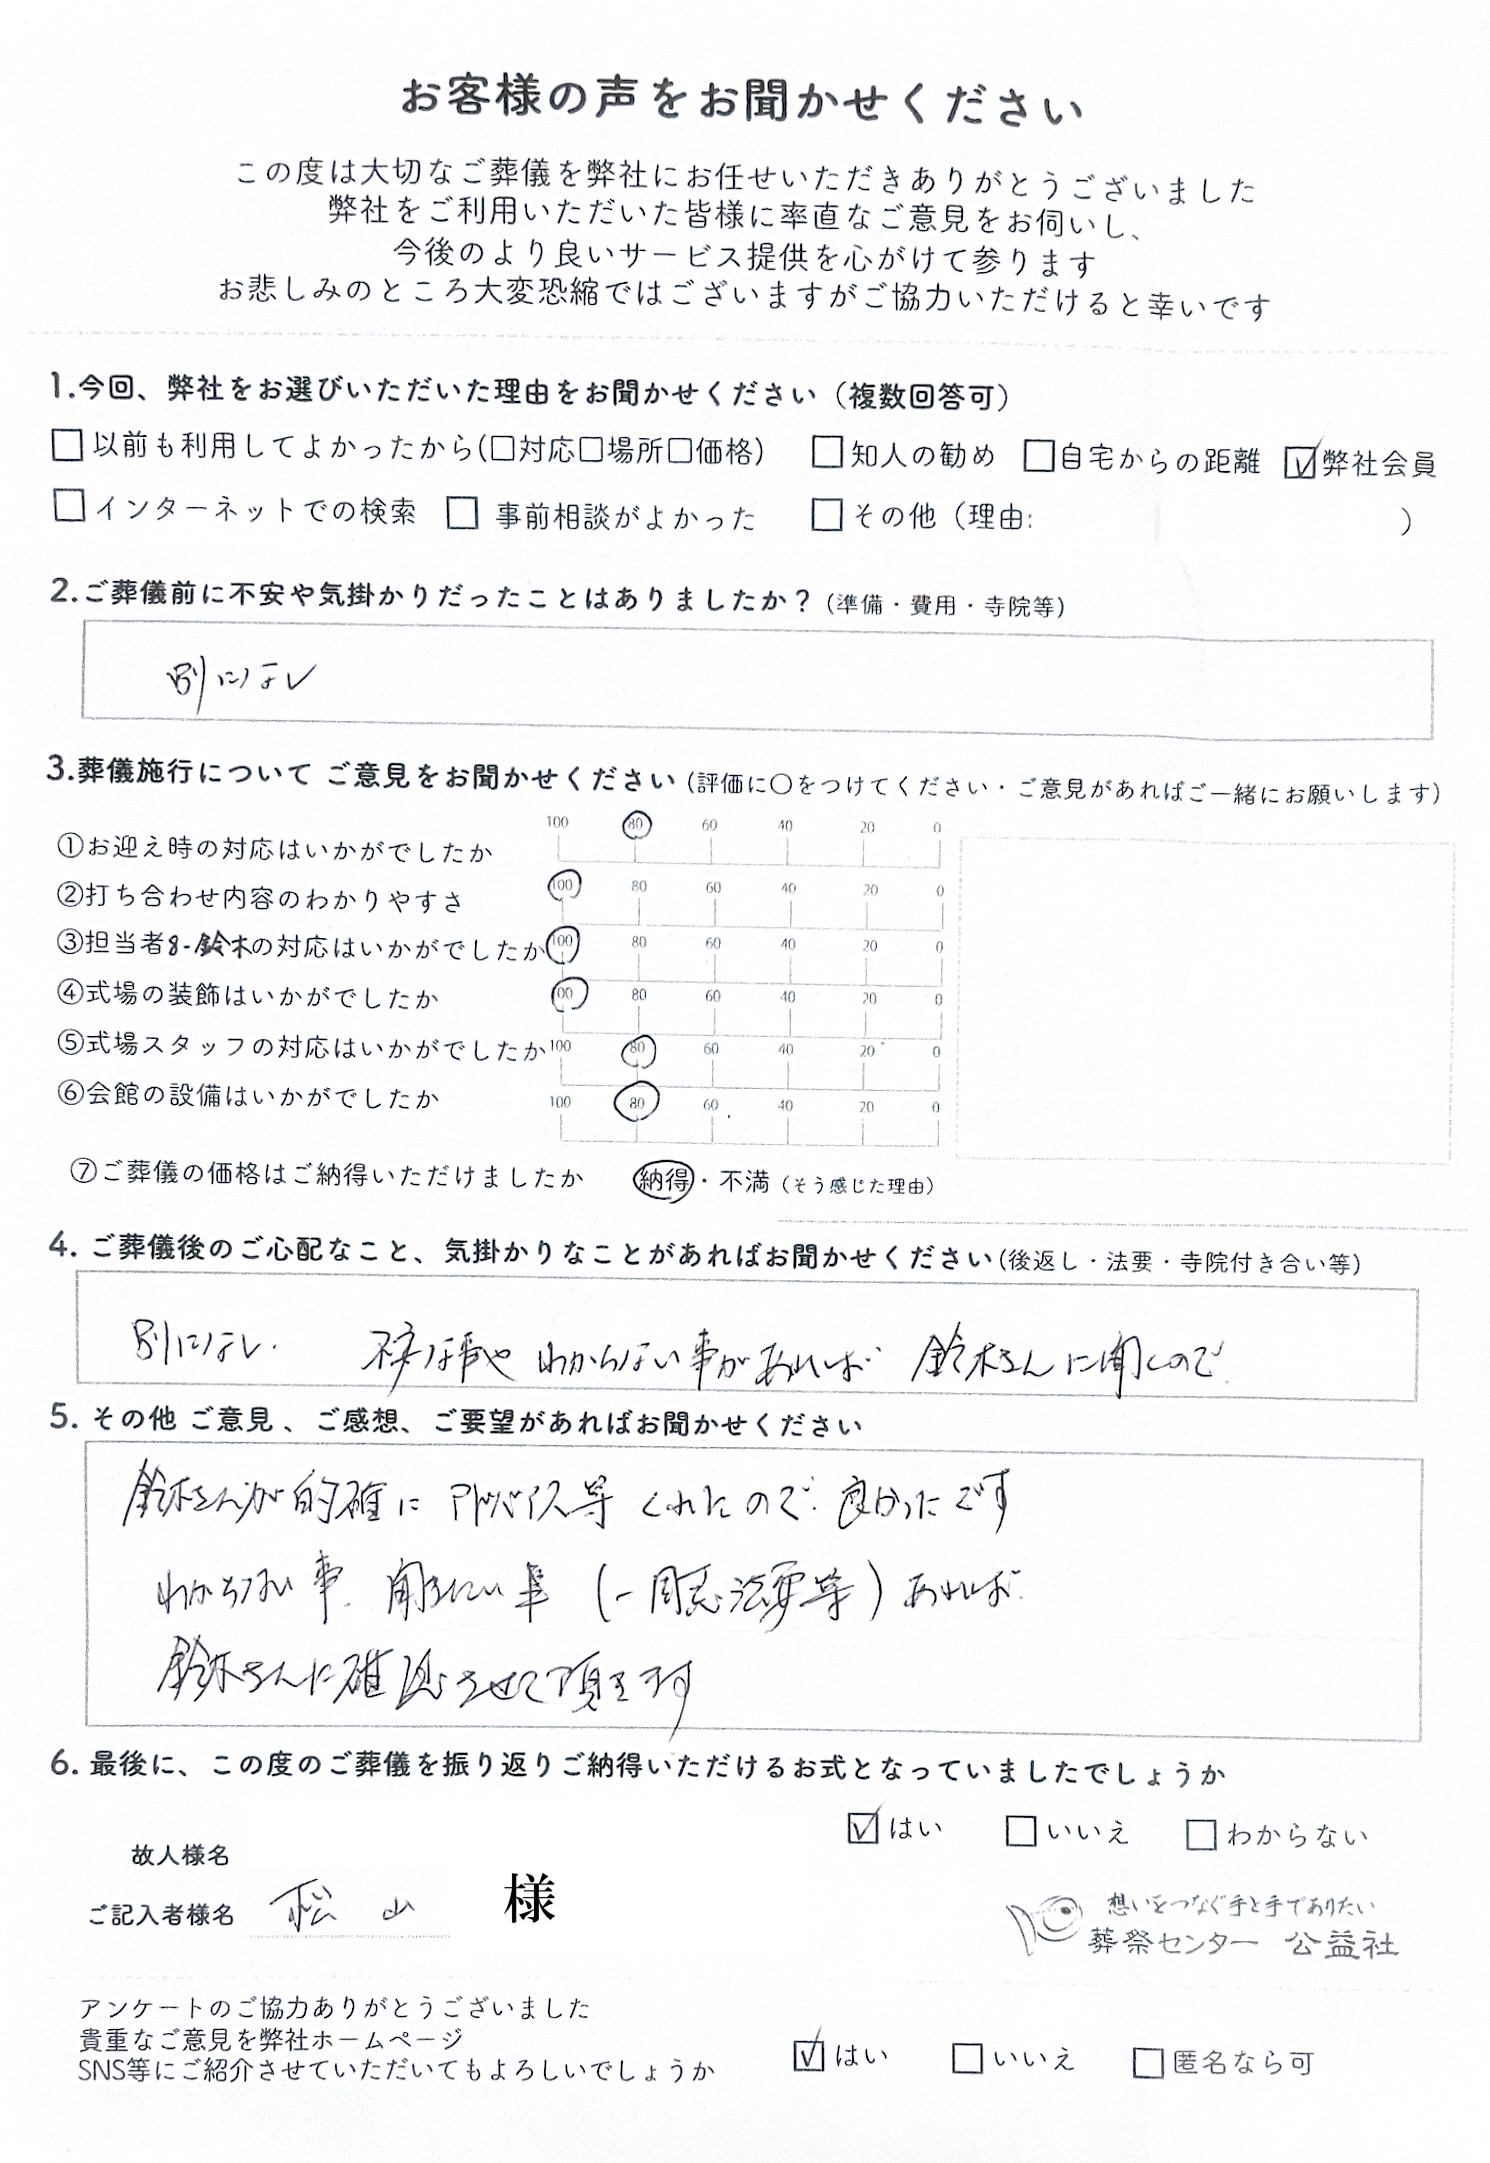 お客様の声をお聞かせください
この度は大切なご葬儀を弊社にお任せいただきありがとうございました
弊社をご利用いただいた皆様に率直なご意見をお伺いし、
今後のより良いサービス提供を心がけて参ります
お悲しみのところ大変恐縮ではございますがご協力いただけると幸いです
1.今回、弊社をお選びいただいた理由をお聞かせください（複数回答可）
□以前も利用してよかったから(□対応□場所□価格) □知人の勧め □自宅からの距離 ☑弊社会員
□インターネットでの検索 □事前相談がよかった □その他（理由: ）
2.ご葬儀前に不安や気掛かりだったことはありましたか？(準備・費用・寺院等)
別になし
3.葬儀施行について ご意見をお聞かせください(評価に○をつけてください・ご意見があればご一緒にお願いします)
①お迎え時の対応はいかがでしたか 100 80 60 40 20 0
②打ち合わせ内容のわかりやすさ 100 80 60 40 20 0
③担当者 鈴木の対応はいかがでしたか 100 80 60 40 20 0
④式場の装飾はいかがでしたか 100 80 60 40 20 0
⑤式場スタッフの対応はいかがでしたか 100 80 60 40 20 0
⑥会館の設備はいかがでしたか 100 80 60 40 20 0
⑦ご葬儀の価格はご納得いただけましたか 納得・不満（そう感じた理由）
4. ご葬儀後のご心配なこと、気掛かりなことがあればお聞かせください(後返し・法要・寺院付き合い等)
別になし. 不安な事や わからない事があれば 鈴木さんに聞くので.
5. その他 ご意見、ご感想、ご要望があればお聞かせください
鈴木さんが的確に アドバイス等 くれたので. 良かったです
わからない事. 聞きたい事 (一周忌法要等) あれば.
鈴木さんに確認させて頂きます
6. 最後に、この度のご葬儀を振り返りご納得いただけるお式となっていましたでしょうか
☑はい □いいえ □わからない
故人様名
ご記入者様名 松山 様
想いをつなぐ手と手でありたい
葬祭センター 公益社
アンケートのご協力ありがとうございました
貴重なご意見を弊社ホームページ
SNS等にご紹介させていただいてもよろしいでしょうか ☑はい □いいえ □匿名なら可